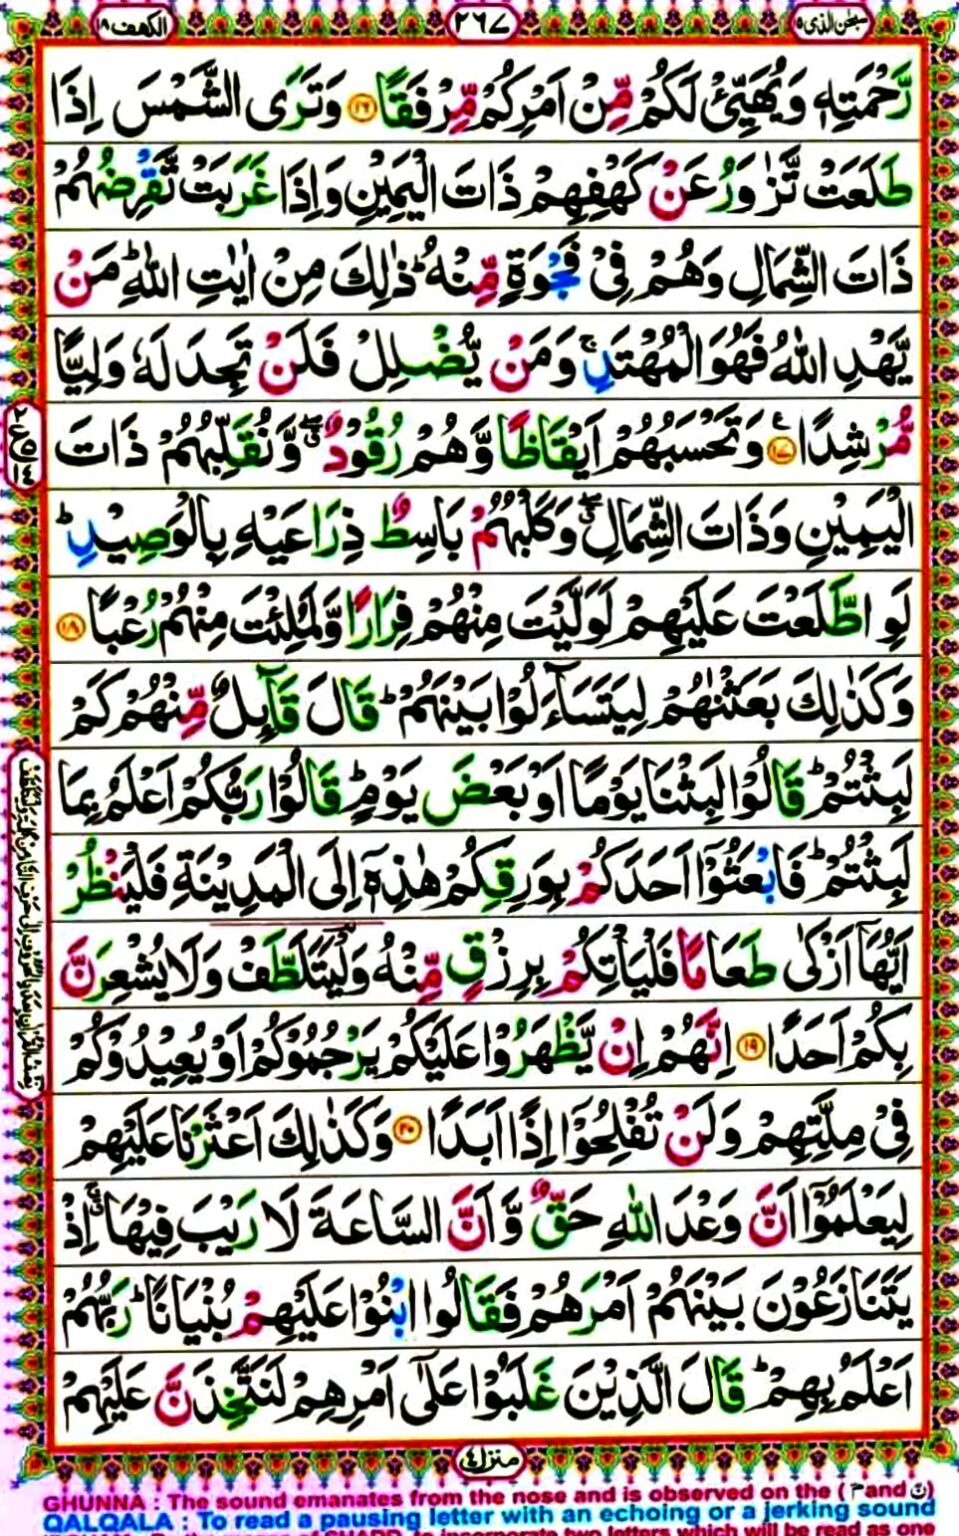 الكهف ١٨
٢٦٧
سبحن الذي ١٥
رَّحْمَتِهٖ وَيُهَيِّئْ لَكُمْ مِّنْ اَمْرِكُمْ مِّرْفَقًا ١٦ وَتَرَى الشَّمْسَ اِذَا
طَلَعَتْ تَّزٰوَرُ عَنْ كَهْفِهِمْ ذَاتَ الْيَمِيْنِ وَاِذَا غَرَبَتْ تَّقْرِضُهُمْ
ذَاتَ الشِّمَالِ وَهُمْ فِيْ فَجْوَةٍ مِّنْهُ ؕ ذٰلِكَ مِنْ اٰيٰتِ اللّٰهِ ؕ مَنْ
يَّهْدِ اللّٰهُ فَهُوَ الْمُهْتَدِ ۚ وَمَنْ يُّضْلِلْ فَلَنْ تَجِدَ لَهٗ وَلِيًّا
مُّرْشِدًا ١٧ ع وَتَحْسَبُهُمْ اَيْقَاظًا وَّهُمْ رُقُوْدٌ ۖ وَّنُقَلِّبُهُمْ ذَاتَ
الْيَمِيْنِ وَذَاتَ الشِّمَالِ ۖ وَكَلْبُهُمْ بَاسِطٌ ذِرَاعَيْهِ بِالْوَصِيْدِ ؕ
لَوِ اطَّلَعْتَ عَلَيْهِمْ لَوَلَّيْتَ مِنْهُمْ فِرَارًا وَّلَمُلِئْتَ مِنْهُمْ رُعْبًا ١٨
وَكَذٰلِكَ بَعَثْنٰهُمْ لِيَتَسَآءَلُوْا بَيْنَهُمْ ؕ قَالَ قَآئِلٌ مِّنْهُمْ كَمْ
لَبِثْتُمْ ؕ قَالُوْا لَبِثْنَا يَوْمًا اَوْ بَعْضَ يَوْمٍ ؕ قَالُوْا رَبُّكُمْ اَعْلَمُ بِمَا
لَبِثْتُمْ ؕ فَابْعَثُوْٓا اَحَدَكُمْ بِوَرِقِكُمْ هٰذِهٖٓ اِلَى الْمَدِيْنَةِ فَلْيَنْظُرْ
اَيُّهَآ اَزْكٰى طَعَامًا فَلْيَاْتِكُمْ بِرِزْقٍ مِّنْهُ وَلْيَتَلَطَّفْ وَلَا يُشْعِرَنَّ
بِكُمْ اَحَدًا ١٩ اِنَّهُمْ اِنْ يَّظْهَرُوْا عَلَيْكُمْ يَرْجُمُوْكُمْ اَوْ يُعِيْدُوْكُمْ
فِيْ مِلَّتِهِمْ وَلَنْ تُفْلِحُوْٓا اِذًا اَبَدًا ٢٠ وَكَذٰلِكَ اَعْثَرْنَا عَلَيْهِمْ
لِيَعْلَمُوْٓا اَنَّ وَعْدَ اللّٰهِ حَقٌّ وَّاَنَّ السَّاعَةَ لَا رَيْبَ فِيْهَا ۚ اِذْ
يَتَنَازَعُوْنَ بَيْنَهُمْ اَمْرَهُمْ فَقَالُوا ابْنُوْا عَلَيْهِمْ بُنْيَانًا ؕ رَبُّهُمْ
اَعْلَمُ بِهِمْ ؕ قَالَ الَّذِيْنَ غَلَبُوْا عَلٰٓى اَمْرِهِمْ لَنَتَّخِذَنَّ عَلَيْهِمْ
منزل ٤
GHUNNA : The sound emanates from the nose and is observed on the ( م and ن )
QALQALA : To read a pausing letter with an echoing or a jerking sound